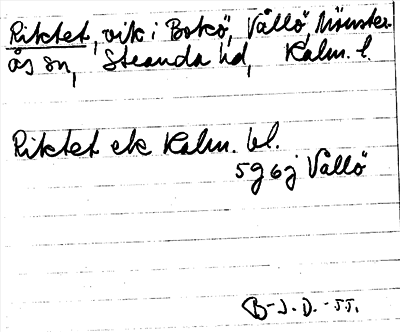 Riktet, vik i Bokö, Vållö, Mönster-
ås sn, Stranda hd, Kalm. l.
Riktet ek Kalm. bl.
5g6j Vållö
B-J. D. - JJ.